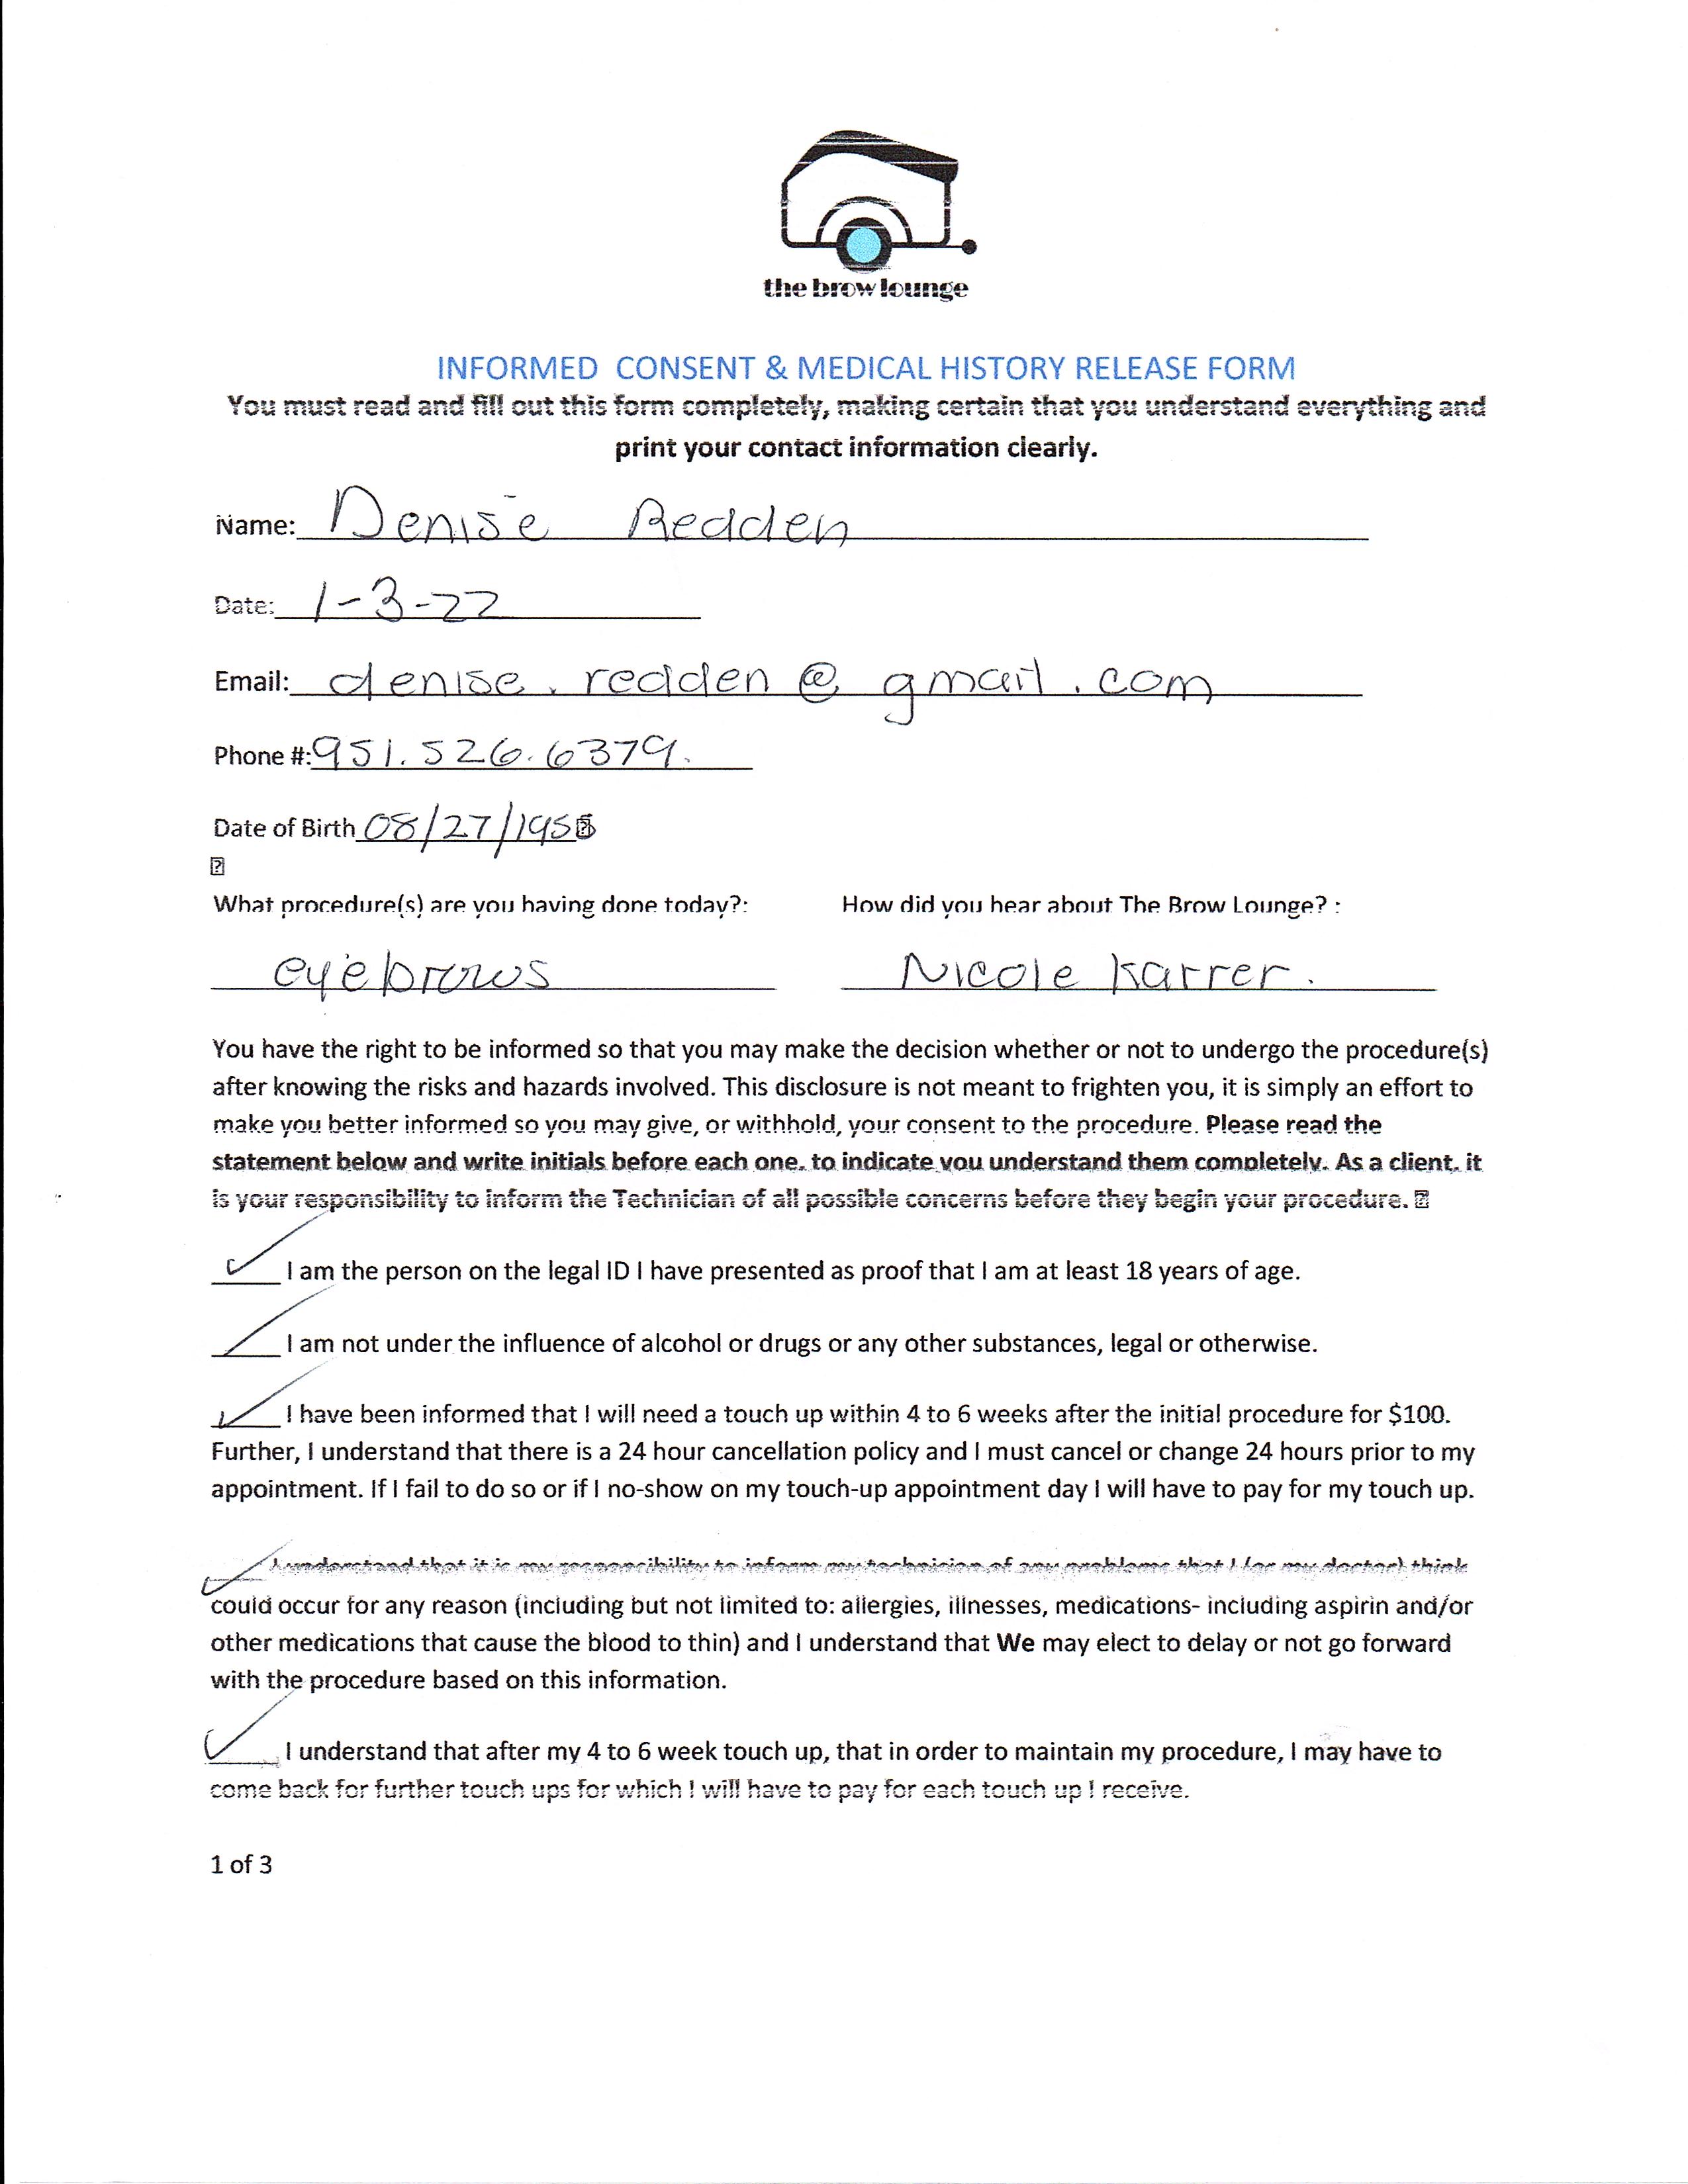 the brow lounge
INFORMED CONSENT & MEDICAL HISTORY RELEASE FORM
You must read and fill out this form completely, making certain that you understand everything and
print your contact information clearly.
Name: Denise Redden
Date: 1-3-22
Email: denise.redden@gmail.com
Phone #: 951.526.6379.
Date of Birth 08/27/195
What procedure(s) are you having done today?: How did you hear about The Brow Lounge? :
eyebrows Nicole Karrer.
You have the right to be informed so that you may make the decision whether or not to undergo the procedure(s)
after knowing the risks and hazards involved. This disclosure is not meant to frighten you, it is simply an effort to
make you better informed so you may give, or withhold, your consent to the procedure. Please read the
statement below and write initials before each one, to indicate you understand them completely. As a client, it
is your responsibility to inform the Technician of all possible concerns before they begin your procedure.
✓ I am the person on the legal ID I have presented as proof that I am at least 18 years of age.
✓ I am not under the influence of alcohol or drugs or any other substances, legal or otherwise.
✓ I have been informed that I will need a touch up within 4 to 6 weeks after the initial procedure for $100.
Further, I understand that there is a 24 hour cancellation policy and I must cancel or change 24 hours prior to my
appointment. If I fail to do so or if I no-show on my touch-up appointment day I will have to pay for my touch up.
✓ I understand that it is my responsibility to inform my technician of any problems that I (or my doctor) think
could occur for any reason (including but not limited to: allergies, illnesses, medications- including aspirin and/or
other medications that cause the blood to thin) and I understand that We may elect to delay or not go forward
with the procedure based on this information.
✓ I understand that after my 4 to 6 week touch up, that in order to maintain my procedure, I may have to
come back for further touch ups for which I will have to pay for each touch up I receive.
1 of 3